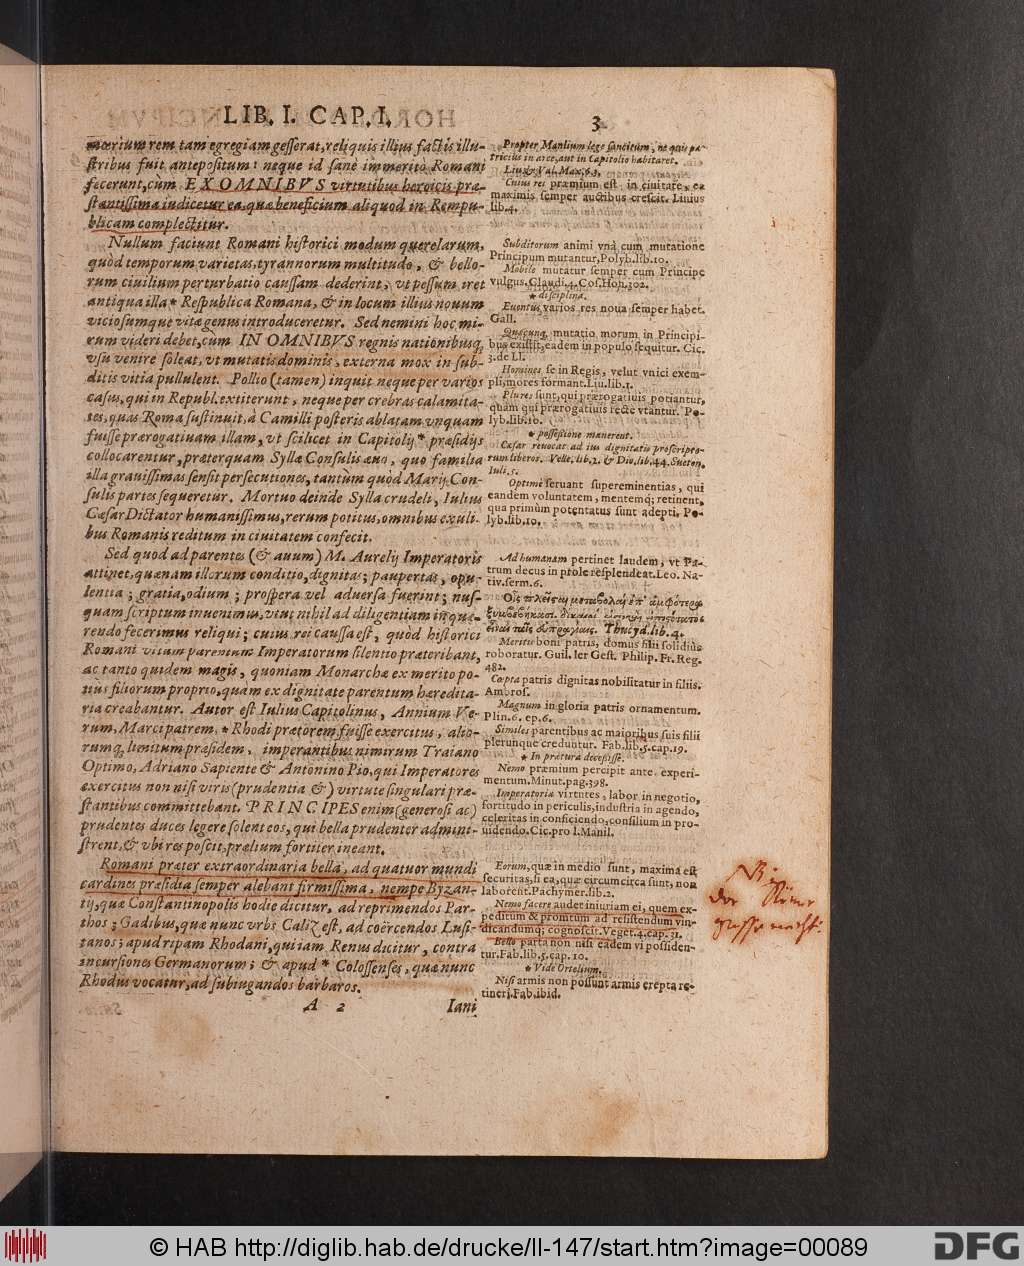 LIB. I. CAP. I.
3
mœrium rem tam egregiam gesserat, reliquis illius factis illu-
stribus fuit antepositum: neque id sanè immeritò Romani
fecerunt, cùm EX OMNIBVS virtutibus heroicis præ-
stantissima iudicetur ea, quæ beneficium aliquod in Rempu-
blicam complectitur.
Nullum faciunt Romani historici modum querelarum,
quòd temporum varietas, tyrannorum multitudo, & bello-
rum ciuilium perturbatio caussam dederint, vt pessum iret
antiqua illa * Respublica Romana, & in locum illius nouum
viciosumque vitæ genus introduceretur. Sed nemini hoc mi-
rum videri debet, cùm IN OMNIBVS regnis nationibusq,
vsu venire soleat, vt mutatis dominis, externa mox in sub-
ditis vitia pullulent. Pollio (tamen) inquit neque per varios
casus, qui in Republ. extiterunt, neque per crebras calamita-
tes, quas Roma sustinuit, à Camilli posteris ablatam vnquam
fuisse prærogatiuam illam, vt scilicet in Capitolij * præsidijs
collocarentur, præterquam Syllæ Consulis æuo, quo familia
illa grauissimas sensit persecutiones, tantùm quòd Marij Con-
sulis partes sequeretur. Mortuo deinde Sylla crudeli, Iulius
Cæsar Dictator humanissimus, rerum potitus, omnibus exuli-
bus Romanis reditum in ciuitatem confecit.
Sed quod ad parentes (& auum) M. Aurelij Imperatoris
attinet, quænam illorum conditio, dignitas; paupertas, opu-
lentia; gratia, odium; prospera vel aduersa fuerint; nus-
quam scriptum inuenimus, vtut nihil ad diligentiam in quæ-
rendo fecerimus reliqui; cuius rei caussa est, quòd historici
Romani vitam parentum Imperatorum silentio præteribant,
ac tanto quidem magis, quoniam Monarchæ ex merito po-
tius filiorum proprio, quam ex dignitate parentum hæredita-
ria creabantur. Autor est Iulius Capitolinus, Annium Ve-
rum, Marci patrem, * Rhodi prætorem fuisse exercitus, alio-
rumq, limitum præsidem, imperantibus nimirum Traiano
Optimo, Adriano Sapiente & Antonino Pio, qui Imperatores
exercitus non nisi viris (prudentia &) virtute singulari præ-
stantibus committebant. PRINCIPES enim (generosi ac)
prudentes duces legere solent eos, qui bella prudenter admini-
strent, & vbi res poscit, prælium fortiter ineant.
Romani præter extraordinaria bella, ad quatuor mundi
cardines præsidia semper alebant firmissima, nempe Byzan-
tij, quæ Constantinopolis hodie dicitur, ad reprimendos Par-
thos; Gadibus, quæ nunc vrbs Caliz est, ad coërcendos Lusi-
tanos; apud ripam Rhodani, qui iam Renus dicitur, contra
incursiones Germanorum; & apud * Colossenses, quæ nunc
Rhodus vocatur, ad subiugandos barbaros.
A 2
Iani
Propter Manlium lege sancitum, ne quis pa-
tricius in arce, aut in Capitolio habitaret.
Liu. & Val. Max. 6. 3.
Cuius rei præmium est in ciuitate, ea
maximis semper auctibus crescit. Liuius
lib. 4.
Subditorum animi vnà cum mutatione
Principum mutantur, Polyb. lib. 10.
Mobile mutatur semper cum Principe
vulgus. Claudi. 4. Cos. Hon. 302.
* disciplina.
Euentus varios res noua semper habet.
Gall.
Quæcunq, mutatio morum in Principi-
bus existit, eadem in populo sequitur. Cic.
3. de Ll.
Homines se in Regis, velut vnici exem-
pli, mores formant. Liu. lib. 1.
Plures sunt, qui prærogatiuis potiantur,
quàm qui prærogatiuis rectè vtantur. Po-
lyb. lib. 10.
* possessione manerent.
Cæsar reuocat ad ius dignitatis proscripto-
rum liberos. Velle. lib. 2. & Dio. lib. 44. Sueton.
Iuli. 5.
Optimè seruant supereminentias, qui
eandem voluntatem, mentemq; retinent,
qua primùm potentatus sunt adepti, Po-
lyb. lib. 10.
Ad humanam pertinet laudem, vt Pa-
trum decus in prole resplendeat. Leo. Na-
tiv. serm. 6.
Thucyd. lib. 4.
Meritis boni patris, domus filii solidiùs
roboratur. Guil. ler Gest. Philip. Fr. Reg.
482.
Cœpta patris dignitas nobilitatur in filiis.
Ambros.
Magnum in gloria patris ornamentum.
Plin. 6. ep. 6.
Similes parentibus ac maioribus suis filii
plerunque creduntur. Fab. lib. 5. cap. 19.
* In prætura decessisse.
Nemo præmium percipit ante experi-
mentum. Minut. pag. 398.
Imperatoriæ virtutes, labor in negotio,
fortitudo in periculis, industria in agendo,
celeritas in conficiendo, consilium in pro-
uidendo. Cic. pro l. Manil.
Eorum, quæ in medio sunt, maxima est
securitas, si ea, quæ circumcirca sunt, non
laborent. Pachymer. lib. 2.
Nemo facere audet iniuriam ei, quem ex-
peditum & promtum ad resistendum vin-
dicandumq; cognoscit. Veget. 4. cap. 31.
Bello parta non nisi eadem vi possiden-
tur. Fab. lib. 5. cap. 10.
* Vide Ortelium.
Nisi armis non possunt armis erepta re-
tineri. Fab. ibid.
der Römer
© HAB http://diglib.hab.de/drucke/ll-147/start.htm?image=00089
DFG